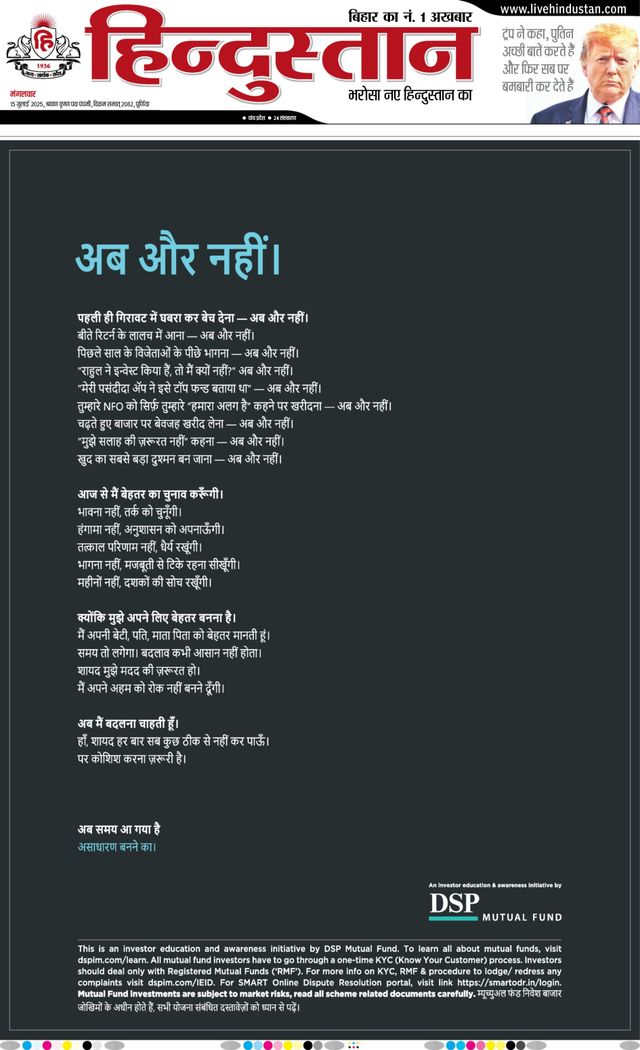 www.livehindustan.com
बिहार का नं. 1 अखबार
हिन्दुस्तान
भरोसा नए हिन्दुस्तान का
हि
1936
मंगलवार
15 जुलाई 2025, श्रावण कृष्ण पक्ष पंचमी, विक्रम सम्वत् 2082, पूर्णिया
● पांच प्रदेश ● 24 संस्करण
ट्रंप ने कहा, पुतिन
अच्छी बातें करते हैं
और फिर सब पर
बमबारी कर देते हैं
अब और नहीं।
पहली ही गिरावट में घबरा कर बेच देना — अब और नहीं।
बीते रिटर्न के लालच में आना — अब और नहीं।
पिछले साल के विजेताओं के पीछे भागना — अब और नहीं।
"राहुल ने इन्वेस्ट किया हैं, तो मैं क्यों नहीं?" अब और नहीं।
"मेरी पसंदीदा ॲप ने इसे टॉप फन्ड बताया था" — अब और नहीं।
तुम्हारे NFO को सिर्फ़ तुम्हारे "हमारा अलग है" कहने पर खरीदना — अब और नहीं।
चढ़ते हुए बाजार पर बेवजह खरीद लेना — अब और नहीं।
"मुझे सलाह की ज़रूरत नहीं" कहना — अब और नहीं।
खुद का सबसे बड़ा दुश्मन बन जाना — अब और नहीं।
आज से मैं बेहतर का चुनाव करूँगी।
भावना नहीं, तर्क को चुनूँगी।
हंगामा नहीं, अनुशासन को अपनाऊँगी।
तत्काल परिणाम नहीं, धैर्य रखूंगी।
भागना नहीं, मजबूती से टिके रहना सीखूँगी।
महीनों नहीं, दशकों की सोच रखूँगी।
क्योंकि मुझे अपने लिए बेहतर बनना है।
मैं अपनी बेटी, पति, माता पिता को बेहतर मानती हूं।
समय तो लगेगा। बदलाव कभी आसान नहीं होता।
शायद मुझे मदद की ज़रूरत हो।
मैं अपने अहम को रोक नहीं बनने दूँगी।
अब मैं बदलना चाहती हूँ।
हाँ, शायद हर बार सब कुछ ठीक से नहीं कर पाऊँ।
पर कोशिश करना ज़रूरी है।
अब समय आ गया है
असाधारण बनने का।
An investor education & awareness initiative by
DSP
MUTUAL FUND
This is an investor education and awareness initiative by DSP Mutual Fund. To learn all about mutual funds, visit
dspim.com/learn. All mutual fund investors have to go through a one-time KYC (Know Your Customer) process. Investors
should deal only with Registered Mutual Funds ('RMF'). For more info on KYC, RMF & procedure to lodge/ redress any
complaints visit dspim.com/IEID. For SMART Online Dispute Resolution portal, visit link https://smartodr.in/login.
Mutual Fund investments are subject to market risks, read all scheme related documents carefully. म्यूच्युअल फंड निवेश बाजार
जोखिमों के अधीन होते हैं, सभी योजना संबंधित दस्तावेज़ों को ध्यान से पढ़ें।